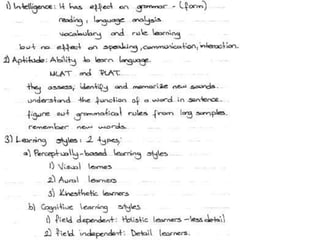 1) Intelligence: It has effect on grammar - (form)
reading, language analysis
vocabulary and rule learning
but no effect on speaking, communication, interaction.
2) Aptitude: Ability to learn language.
MLAT and PLAT.
they assess; identify and memorize new sounds.
understand the function of a word in sentence.
figure out grammatical rules from lang samples.
remember new words.
3) Learning styles: 2 types:
a) Perceptually-based learning styles
1) Visual learnes
2) Aural learners
3) Kinesthetic learners
b) Cognitive learning styles
1) field dependent: Holistic learners - less detail
2) field independent: Detail learners.